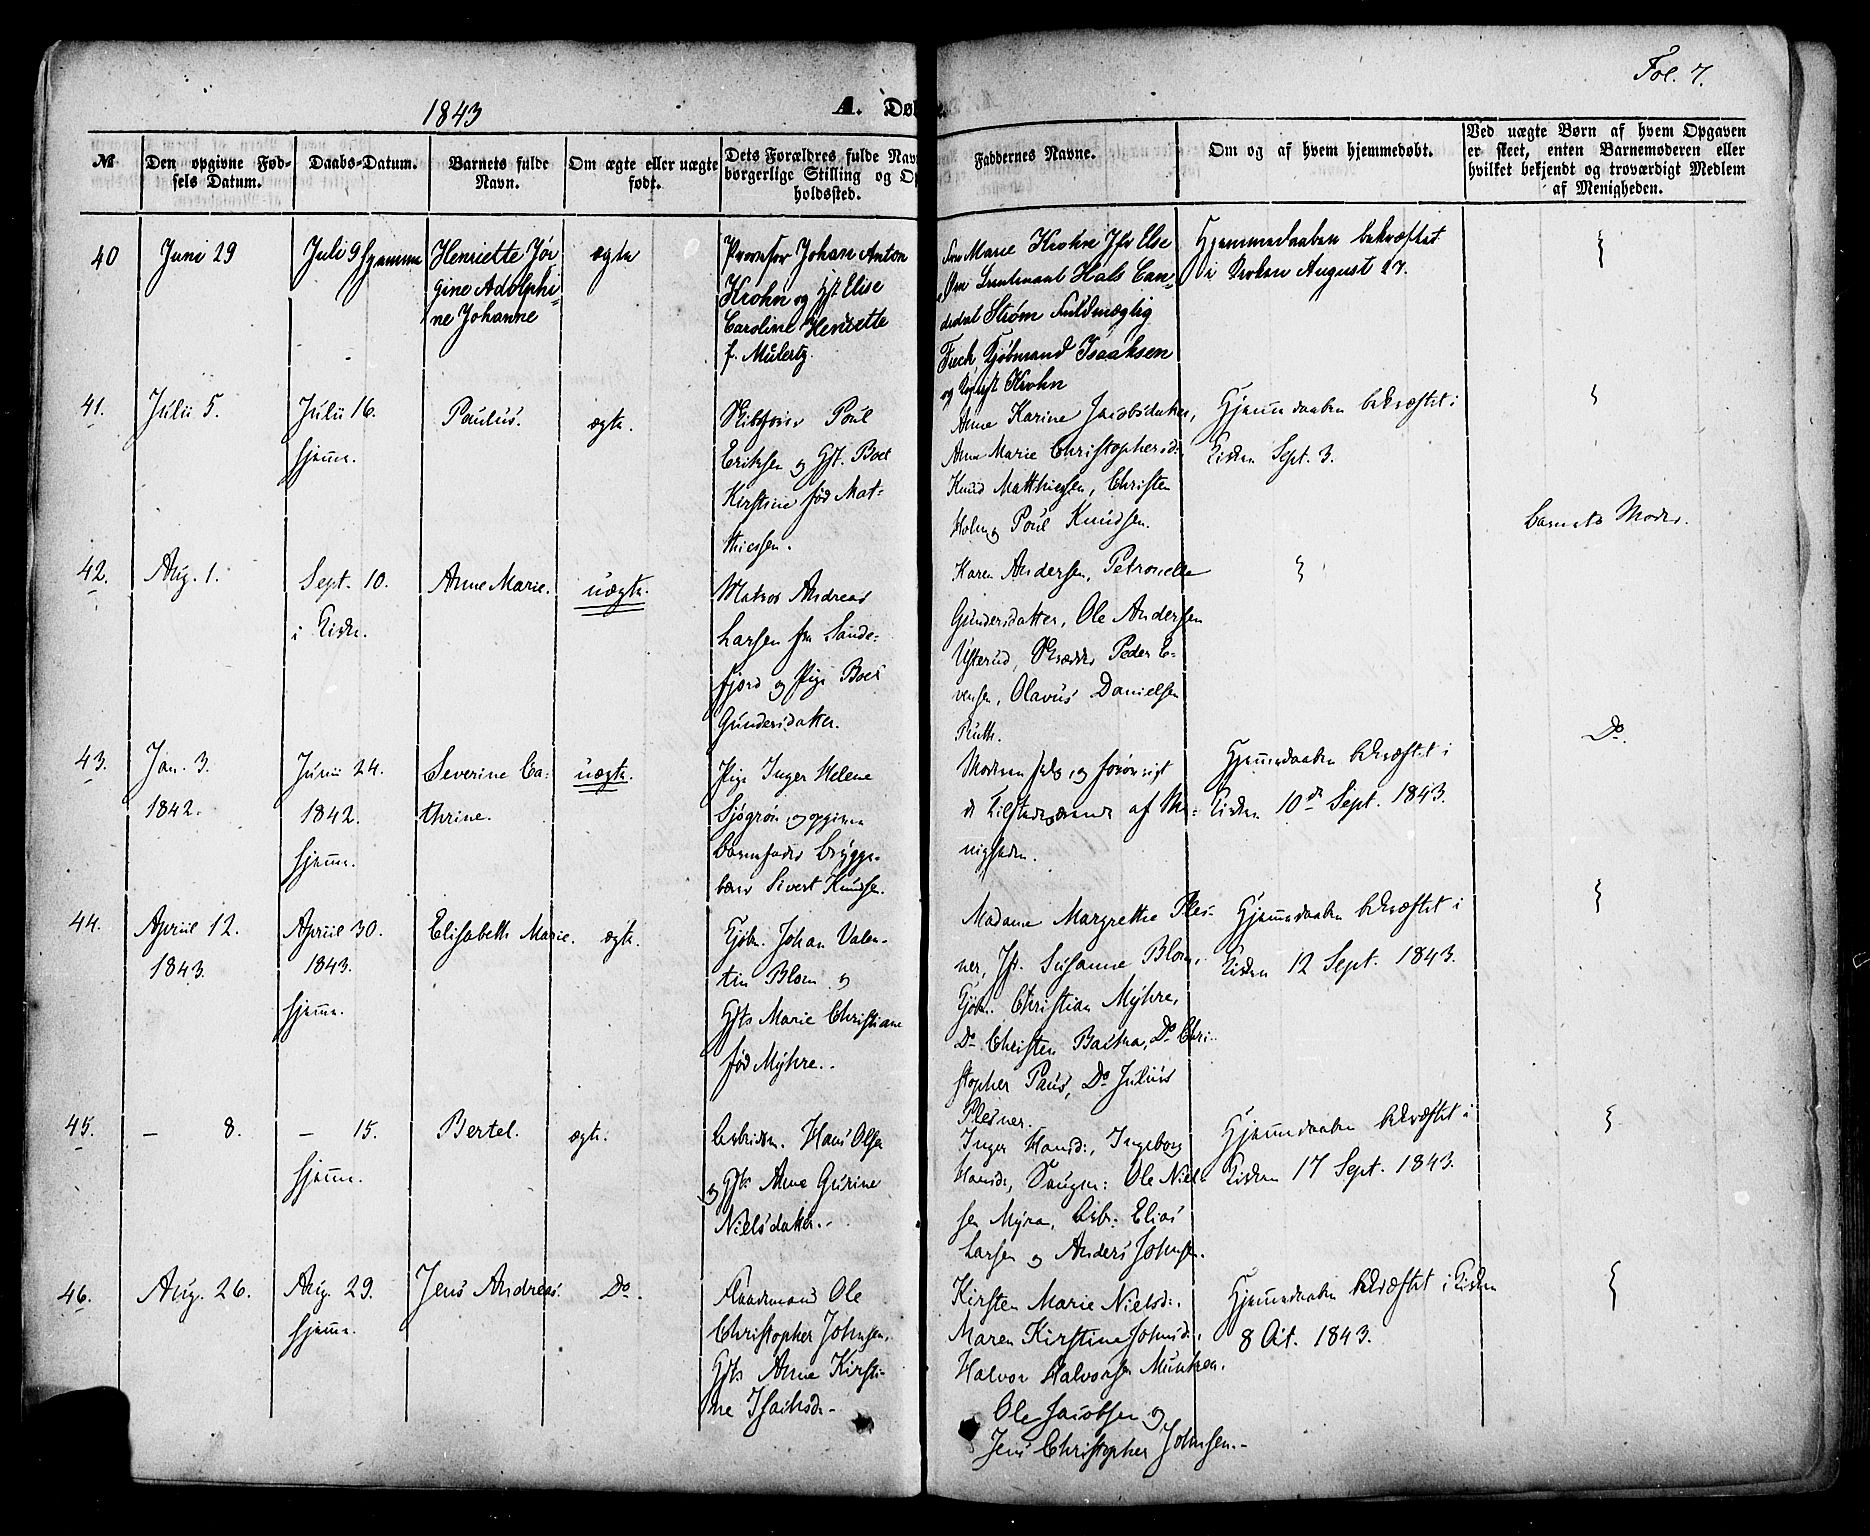 Fol. 7.
1843
A. Døb
№
Den opgivne Fød-
sels Datum.
Daabs-Datum.
Barnets fulde
Navn.
Om ægte eller uægte
født.
Dets Forældres fulde Navn
borgerlige Stilling og Op
holdssted.
Faddernes Navne.
Om og af hvem hjemmedøbt.
Ved uægte Børn af hvem Opgaven
er skeet, enten Barnemoderen eller
hvilket bekjendt og troværdigt Medlem
af Menigheden.
40
Juni 29
Juli 9 hjemme
Henriette Jør
gine Adolphi-
ne Johanne
ægte
Johan Anton
Krohn og Hst Elise
Caroline Henriette
f. Mulertz.
Marie Krohn Jfr Else
Lieutenant Hals Can-
didat Strøm Fuldmægtig
Kjøbmand Isaaksen
og Krohn
Hjemmedaaben bekræftet
i Kirken August 27.
41.
Julii 5.
Julii 16.
hjemme.
Paulus.
ægte.
Skibsfører Poul
Eriksen og Hst. Boel
Kirstine fød Mat-
thiesen.
Anne Karine Jacobsdatter,
Anne Marie Christophersd:
Knud Matthiesen, Christen
Holm og Poul Knudsen.
Hjemmedaaben bekræftet i
Kirken Sept. 3.
42.
Aug. 1.
Sept. 10.
i Kirke.
Anne Marie.
uægte.
Matros Andreas
Larsen fra Sande-
fjord og Pige Boel
Gundersdatter.
Karen Andersen, Petronelle
Gundersdatter, Ole Andersen
Ufterud, Skrædder Peder E-
vensen, Olavus Danielsen
Ruth.
Barnets Moder.
43.
Jan. 3.
1842.
Junii 24.
1842.
hjemme.
Severine Ca-
thrine.
uægte.
Pige Inger Helene
Sjøgrøn og opgiven
Barnefader Brygge-
Sivert Knudsen.
Moderen selv, og forøvrigt
de tilstedeværende af Me-
nigheden.
Hjemmedaaben bekræftet i
Kirken 10de Sept. 1843.
Do.
44.
Apriil 12.
1843.
Apriil 30.
1843.
hjemme.
Elisabeth Marie.
ægte.
Kjøbm. Johan Valen-
tin Blom og
Hst Marie Christiane
fød Myhre.
Madame Margrethe Ples-
ner, Jfr. Susanne Blom,
Kjøbm. Christian Myhre,
Do Christen Do Chri-
stopher Paus, Do Julius
Plesner.
Hjemmedaaben bekræftet i
Kirken 12 Sept. 1843.
45.
— 8.
— 15.
hjemme.
Bertel.
ægte.
Arbeidsm. Hans Olsen
og Hst Anne Gurine
Nielsdatter.
Inger Hansd:, Ingeborg
Hansd:, Ole Niel-
sen Myra, Arb: Elias
Larsen og Anders Johnsen.
Hjemmedaaben bekræftet i
Kirken 17 Sept. 1843.
46.
Aug. 26.
Aug. 29.
hjemme.
Jens Andreas.
Do.
Ole
Christopher Johnsen,
Hst Anne Kirsti-
ne Isachsd:
Kirsten Marie Nielsd:,
Maren Kirstine Johnsd:,
Halvor Halvorsen
Ole Jacobsen og
Jens Christopher Johnsen.
Hjemmedaaben bekræftet i Kirken
8 Oct. 1843.